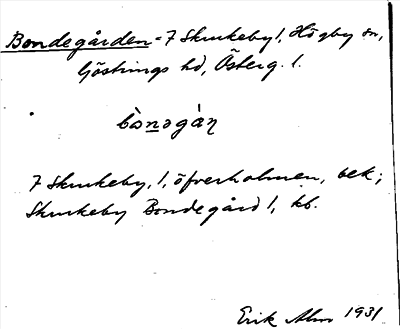 Bondegården = 7 Skrukeby 1, Högby sn,
Göstrings hd, Österg. l.
bònəgàṇ
7 Skrukeby, 1, öfverholmen, bek;
Skrukeby Bondegård 1, kb.
Erik Alm 1931